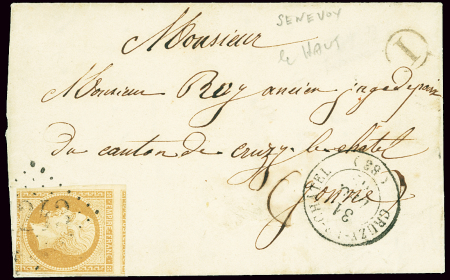 SENEVOY
le HAUT
Monsieur
I
Monsieur Roy ancien juge de paix
du canton de cruzy le chatel
Yonne
CRUZY-LE-CHATEL (83)
31